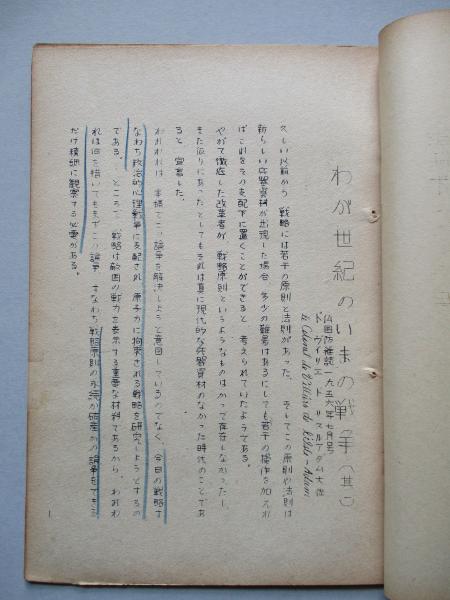 わが世紀のいまの戦争(其一)
仏国防雑誌一九五六年七月号
ド ヴィリエ ド リスルアダム大佐
le Colonel de Villiers de l'Isle-Adam
久しい以前から 戦略には若干の原則と法則があった。 そしてこの原則や法則は
新らしい兵器資材が出現した場合 多少の難易はあるにしても若干の操作を加えれ
ばこれをその支配下に置くことができると 考えられていたようである。
やがて徹底した改革者が、戦略原則というようなものはかつて存在しなかったし、
また仮りにあったとしてもそれは真に現代的な兵器資材のなかった時代のことであ
ると 宣言した。
われわれは 本稿でこの論争を解決しようと意図しているのでなく、今日の戦略す
なわち政治的心理戦争に支配され 原子力に拘束される戦略を研究しようとするの
である。 ところで 戦略は敵国の戦力を表示する重要な材料であるから、われわ
れは何を措いてもまずこの論争 すなわち戦略原則の永続か破産かの論争をできる
だけ積細に観察する必要がある。
1